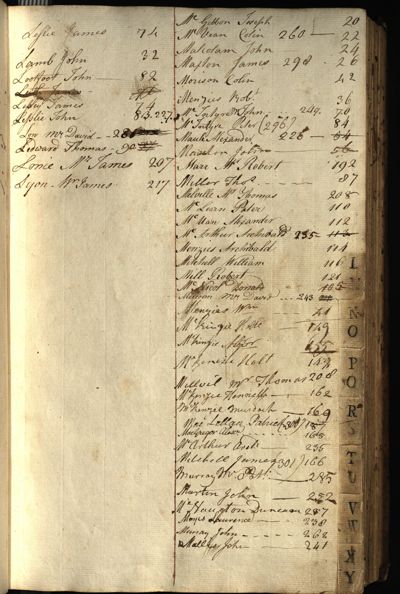 Leslie James 74
Lamb John 32
Lockfoot John 82
Leslie James 74
Leslie John 84. 227
Low Mr David
Ledward Thomas 90
Lonie Mr James 207
Lyon Mr James 217
Mc Gibbon Joseph 20
Mc Vean Colin 260 22
Malcolam John 24
Maxton James 298 26
Morison Colin 42
Menzies Robt 36
Mc Intyre John 249. 70
Mc Intyre (296) 84
Alexander 226 54
John 56
Marr Mr Robert 192
Millor Thos 87
Melville Mr Thomas 208
Mc Lean Peter 110
Mc Nan Alexander 112
Mc Arthur Archibald 235
Menzies Archibald 114
Mitchell William 116
Mill Robert 121
Donald
Mr David 243
Menzies Wm 41
Mc Kinzie 149
Mc Kinzie
149
Mellvil Mr Thomas 208
Mc Kenzie 162
Mc Kenzie Murdoch 169
Mc Lellan Patrick (301)
168
Mc Arthur Archd 236
Mitchell James (301) 166
Murray Mr Patk 285
Martin John 282
Mc Naugton Duncan 287
Moyes Lawrence 238
Murray John 262
John 241
I
N
O
P
Q
R
S
T
U
V
W
X
Y